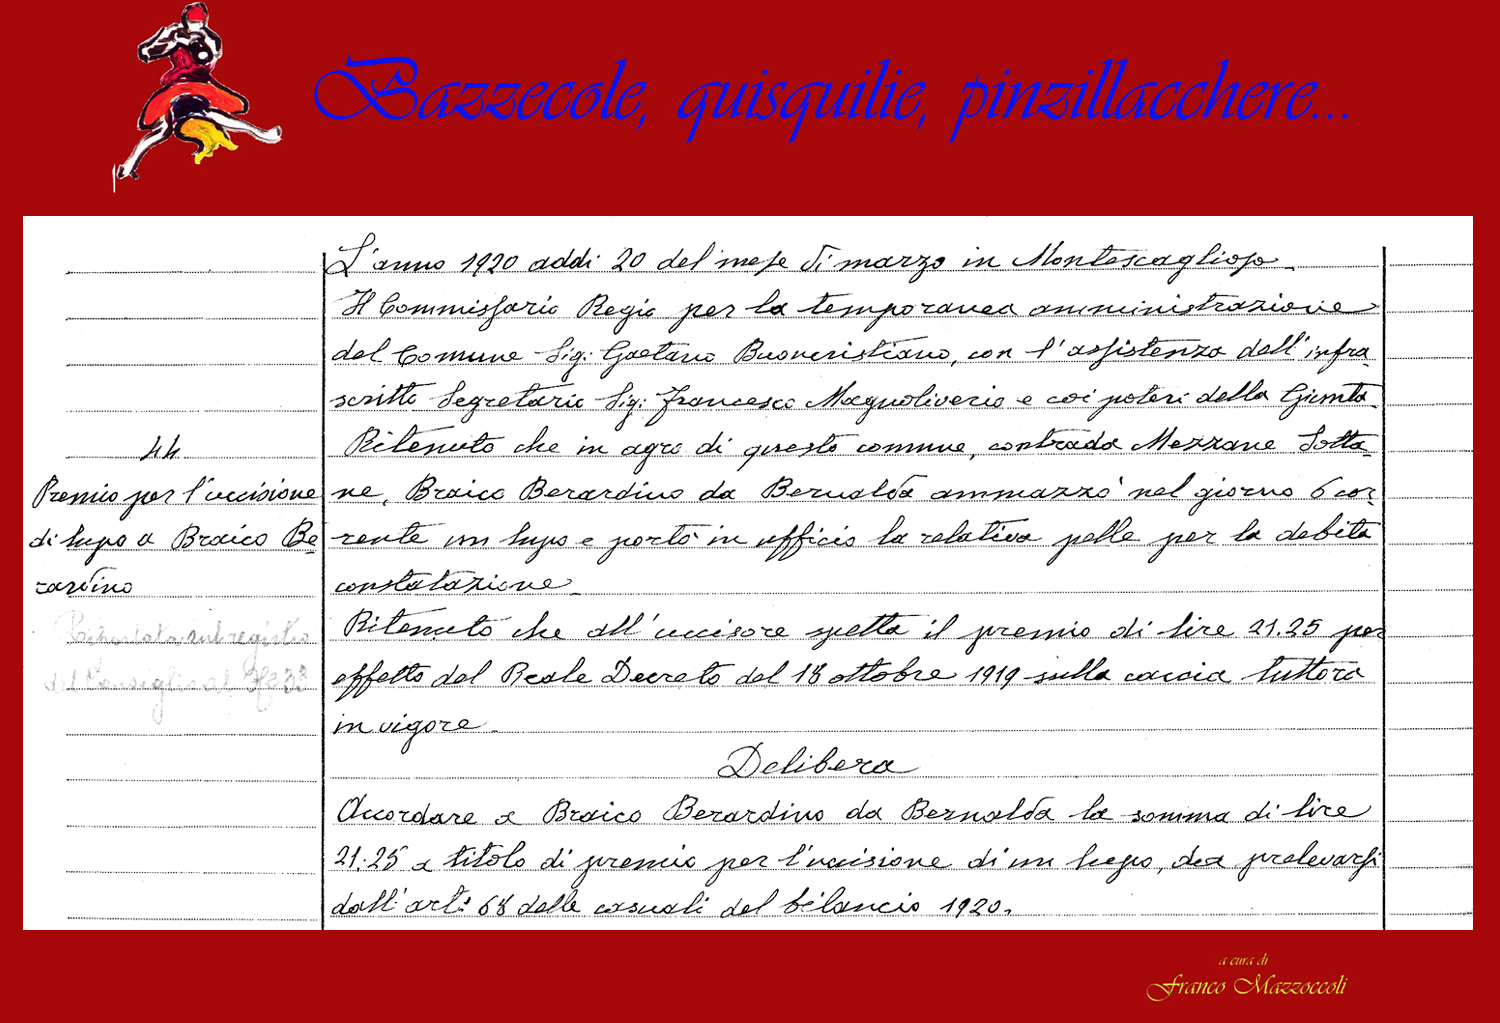 Bazzecole, quisquilie, pinzillacchere...
L'anno 1920 addì 20 del mese di marzo in Montescaglioso
Il Commissario Regio per la temporanea amministrazione
del Comune Sig: Gaetano Buoncristiano, con l'assistenza dell'infra
scritto Segretario Sig: Francesco Magnoliverio e coi poteri della Giunta
44.
Ritenuto che in agro di questo comune, contrada Mezzane Sotta-
Premio per l'uccisione
ne, Braico Berardino da Bernalda ammazzò nel giorno 6 cor
di lupo a Braico Be
rente un lupo e portò in ufficio la relativa pelle per la debita
rardino
constatazione
Riportata sul registro
Ritenuto che all'uccisore spetta il premio di lire 21.25 per
del Consiglio al
effetto del Reale Decreto del 18 ottobre 1919 sulla caccia tuttora
in vigore.
Delibera
Accordare a Braico Berardino da Bernalda la somma di lire
21.25 a titolo di premio per l'uccisione di un lupo, da prelevarsi
dall'art: 68 delle casuali del bilancio 1920.
a cura di
Franco Mazzoccoli